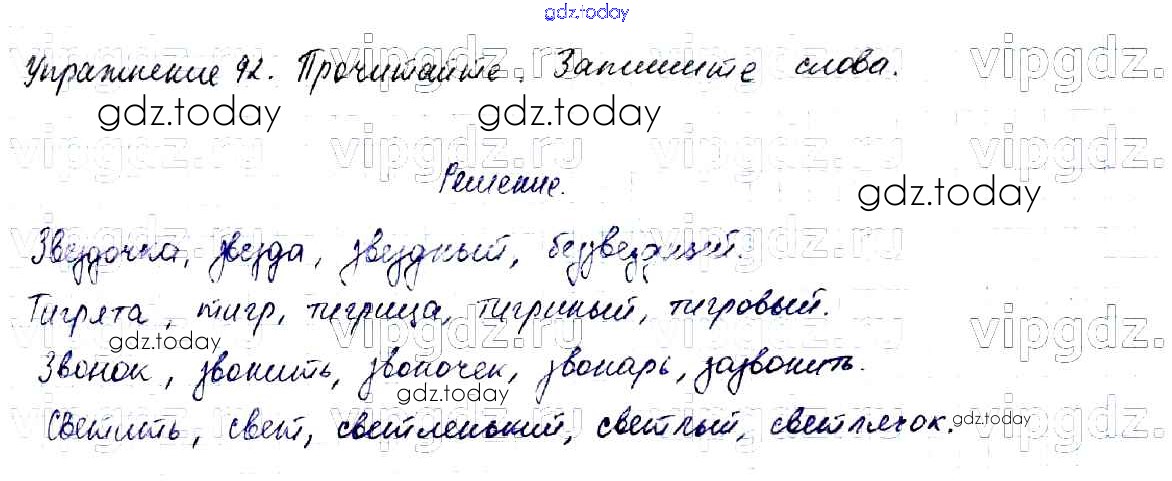 gdz.today
Упражнение 92. Прочитайте. Запишите слова.
gdz.today gdz.today
vipgdz.ru vipgdz.ru vipgdz.
Решение.
gdz.today
Звездочка, звезда, звездный, беззвездный.
Тигрята, тигр, тигрица, тигриный, тигровый.
gdz.today
Звонок, звонить, звоночек, звонарь, зазвонить.
gdz.today
Светить, свет, светленький, светлый, светлячок.
gdz.today